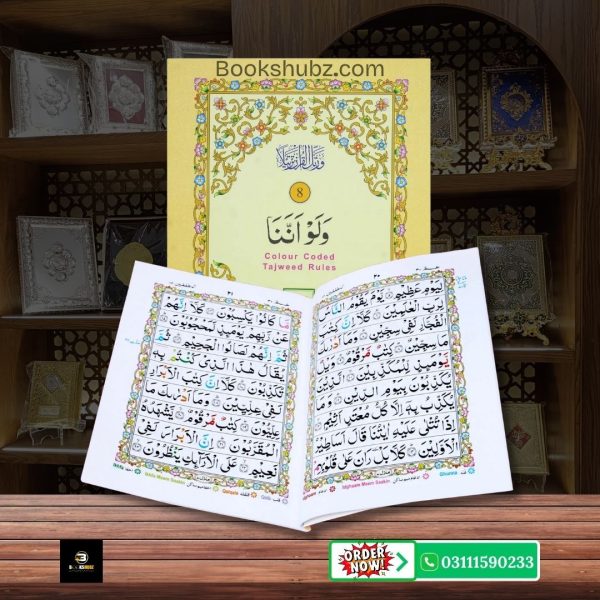 Bookshubz.com
وَرَتِّلِ الْقُرْآنَ تَرْتِيلًا
8
وَلَوْ اَنَّنَا
Colour Coded
Tajweed Rules
لِيَوْمٍ عَظِيْمٍ ۝ يَّوْمَ يَقُوْمُ النَّاسُ
لِرَبِّ الْعٰلَمِيْنَ ۝ كَلَّآ اِنَّ كِتٰبَ
الْفُجَّارِ لَفِيْ سِجِّيْنٍ ۝ وَمَآ اَدْرٰىكَ
مَا سِجِّيْنٌ ۝ كِتٰبٌ مَّرْقُوْمٌ ۝ وَيْلٌ
يَّوْمَئِذٍ لِّلْمُكَذِّبِيْنَ ۝ الَّذِيْنَ
يُكَذِّبُوْنَ بِيَوْمِ الدِّيْنِ ۝ وَمَا
يُكَذِّبُ بِهٖٓ اِلَّا كُلُّ مُعْتَدٍ اَثِيْمٍ ۝
اِذَا تُتْلٰى عَلَيْهِ اٰيٰتُنَا قَالَ اَسَاطِيْرُ
الْاَوَّلِيْنَ ۝ كَلَّا بَلْ رَانَ عَلٰى قُلُوْبِهِمْ
Idghaam Meem Saakin
Ghunna
مَّا كَانُوْا يَكْسِبُوْنَ ۝ كَلَّآ اِنَّهُمْ
عَنْ رَّبِّهِمْ يَوْمَئِذٍ لَّمَحْجُوْبُوْنَ ۝
ثُمَّ اِنَّهُمْ لَصَالُوا الْجَحِيْمِ ۝ ثُمَّ
يُقَالُ هٰذَا الَّذِيْ كُنْتُمْ بِهٖ
تُكَذِّبُوْنَ ۝ كَلَّآ اِنَّ كِتٰبَ الْاَبْرَارِ
لَفِيْ عِلِّيِّيْنَ ۝ وَمَآ اَدْرٰىكَ مَا
عِلِّيُّوْنَ ۝ كِتٰبٌ مَّرْقُوْمٌ ۝ يَّشْهَدُهُ
الْمُقَرَّبُوْنَ ۝ اِنَّ الْاَبْرَارَ لَفِيْ
نَعِيْمٍ ۝ عَلَى الْاَرَآئِكِ يَنْظُرُوْنَ ۝
Ikhfa
Ikhfa Meem Saakin
Qalqala
Qalb
ORDER
NOW!
03111590233
BOOKSHUBZ